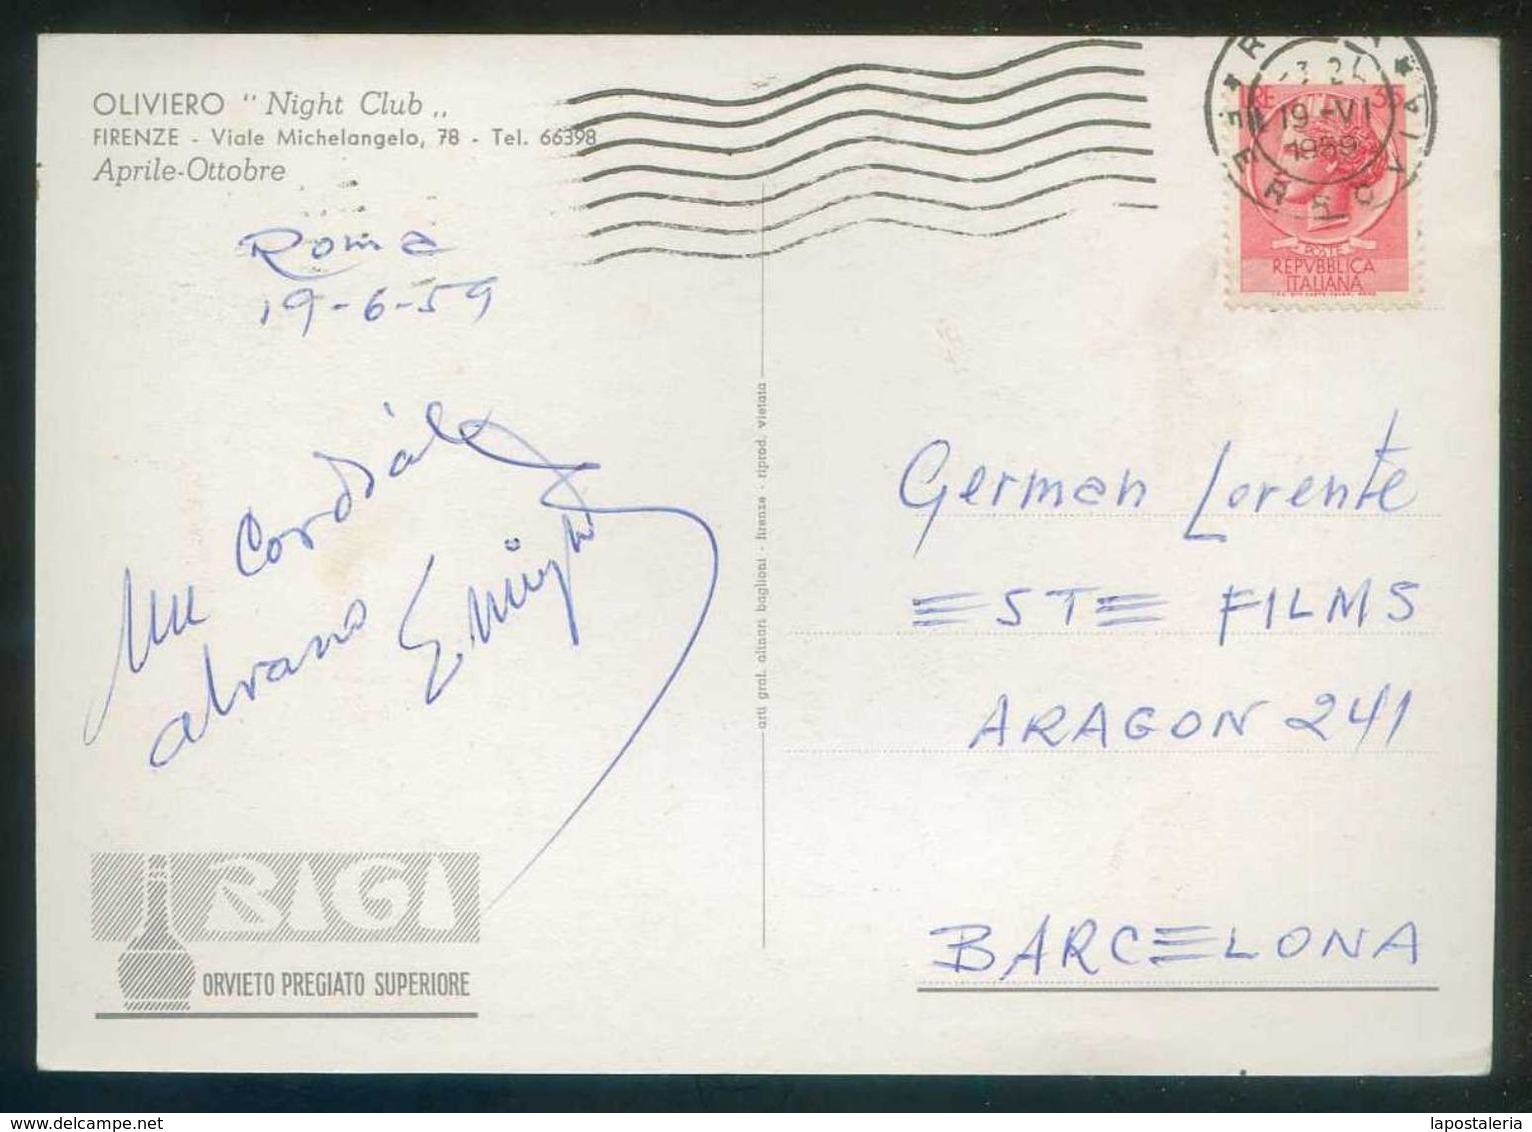 OLIVIERO " Night Club „
FIRENZE - Viale Michelangelo, 78 - Tel. 66398
Aprile-Ottobre
Roma
19-6-59
Un Cordial
abrazo
19-VI
1959
LIRE 35
POSTE
REPVBBLICA
ITALIANA
arti graf. alinari baglioni - firenze - riprod. vietata
German Lorente
ESTE FILMS
ARAGON 241
BARCELONA
BIGI
ORVIETO PREGIATO SUPERIORE
www.delcampe.net
lapostaleria